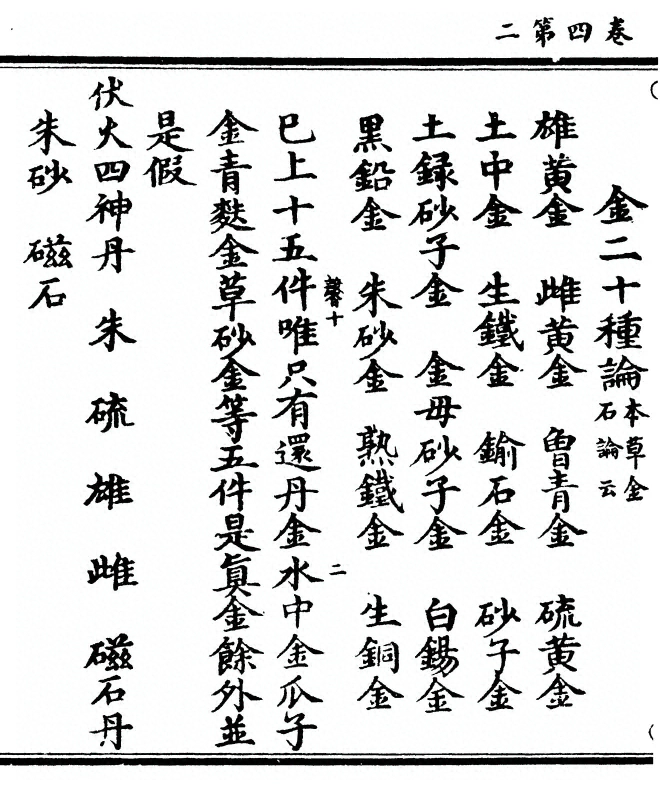 卷四第二
金二十種論本草金石論云
雄黄金 雌黄金 曾青金 硫黄金
土中金 生鐵金 鍮石金 砂子金
土録砂子金 金母砂子金 白錫金
黑鉛金 朱砂金 熟鐵金 生銅金
馨十 二
巳上十五件唯只有還丹金水中金瓜子
金青麩金草砂金等五件是眞金餘外並
是假
伏火四神丹 朱 硫 雄 雌 磁石丹
朱砂 磁石